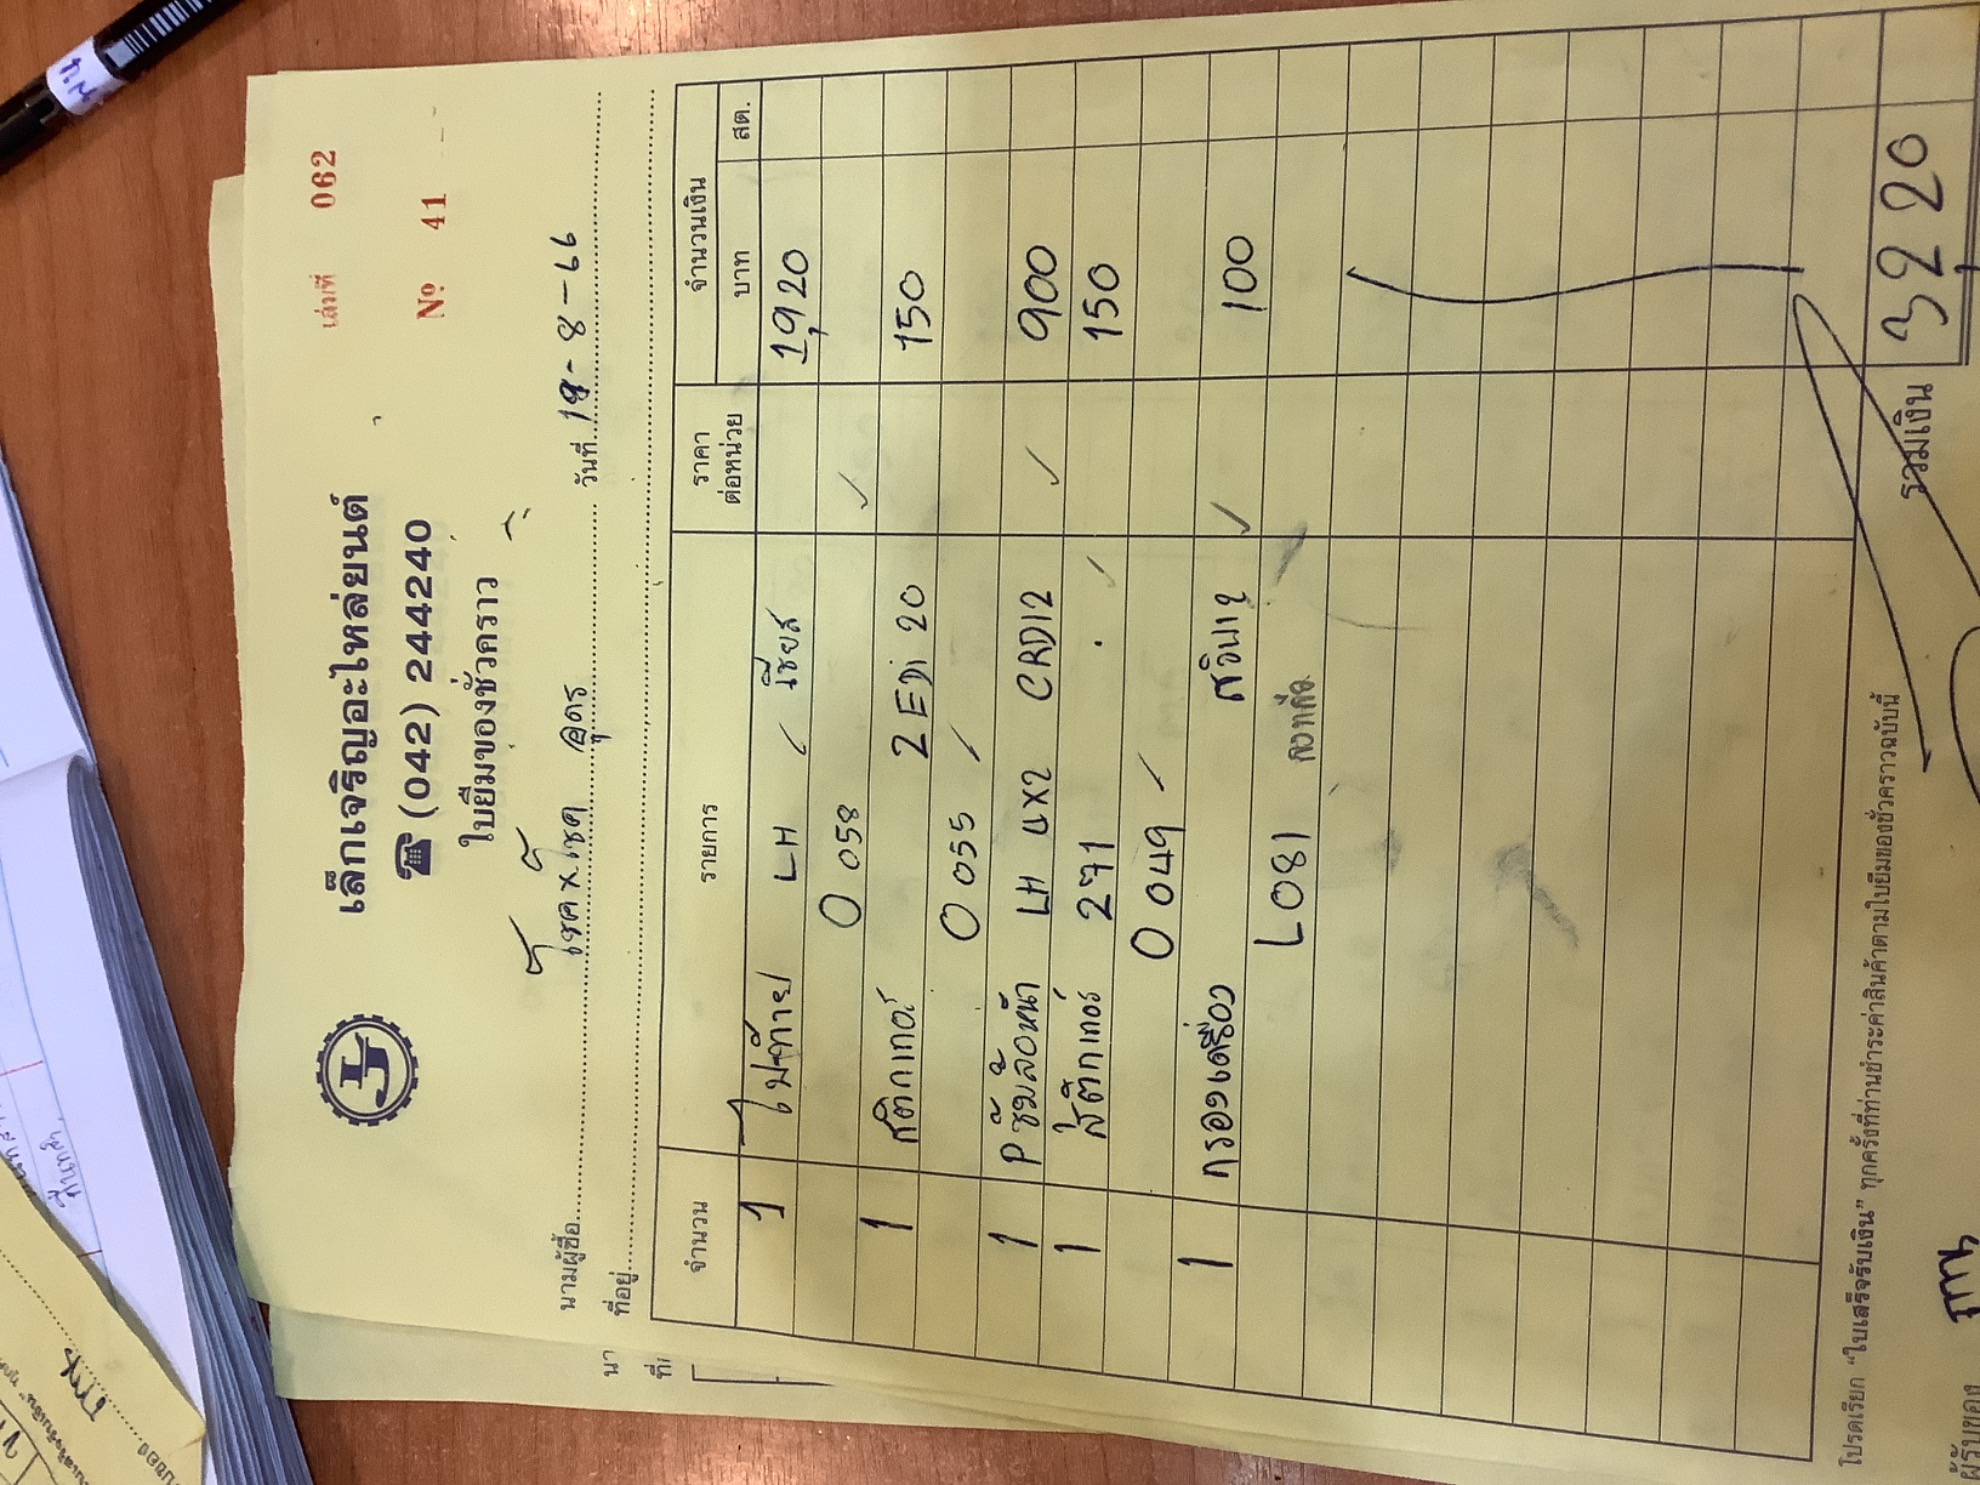 เล่มที่ 062
เล็กเจริญอะไหล่ยนต์
☎ (042) 244240
Nº 41
ใบยืมของชั่วคราว
นามผู้ซื้อ โชค x โชค อุดร วันที่ 19-8-66
ที่อยู่
จำนวน รายการ ราคาต่อหน่วย จำนวนเงิน
บาท สต.
1 ไฟท้าย LH 1,920
0 058
1 สติกเกอร์ 2 EDi 20 150
0 055
1 P ซุ้มล้อหน้า LH 4x2 CRDI2 900
1 สติกเกอร์ 271 150
0 049
1 กรองเครื่อง 100
L081
รวมเงิน 3220
โปรดเรียก “ใบเสร็จรับเงิน” ทุกครั้งที่ท่านชำระค่าสินค้าตามใบยืมของชั่วคราวฉบับนี้
ผู้รับของ